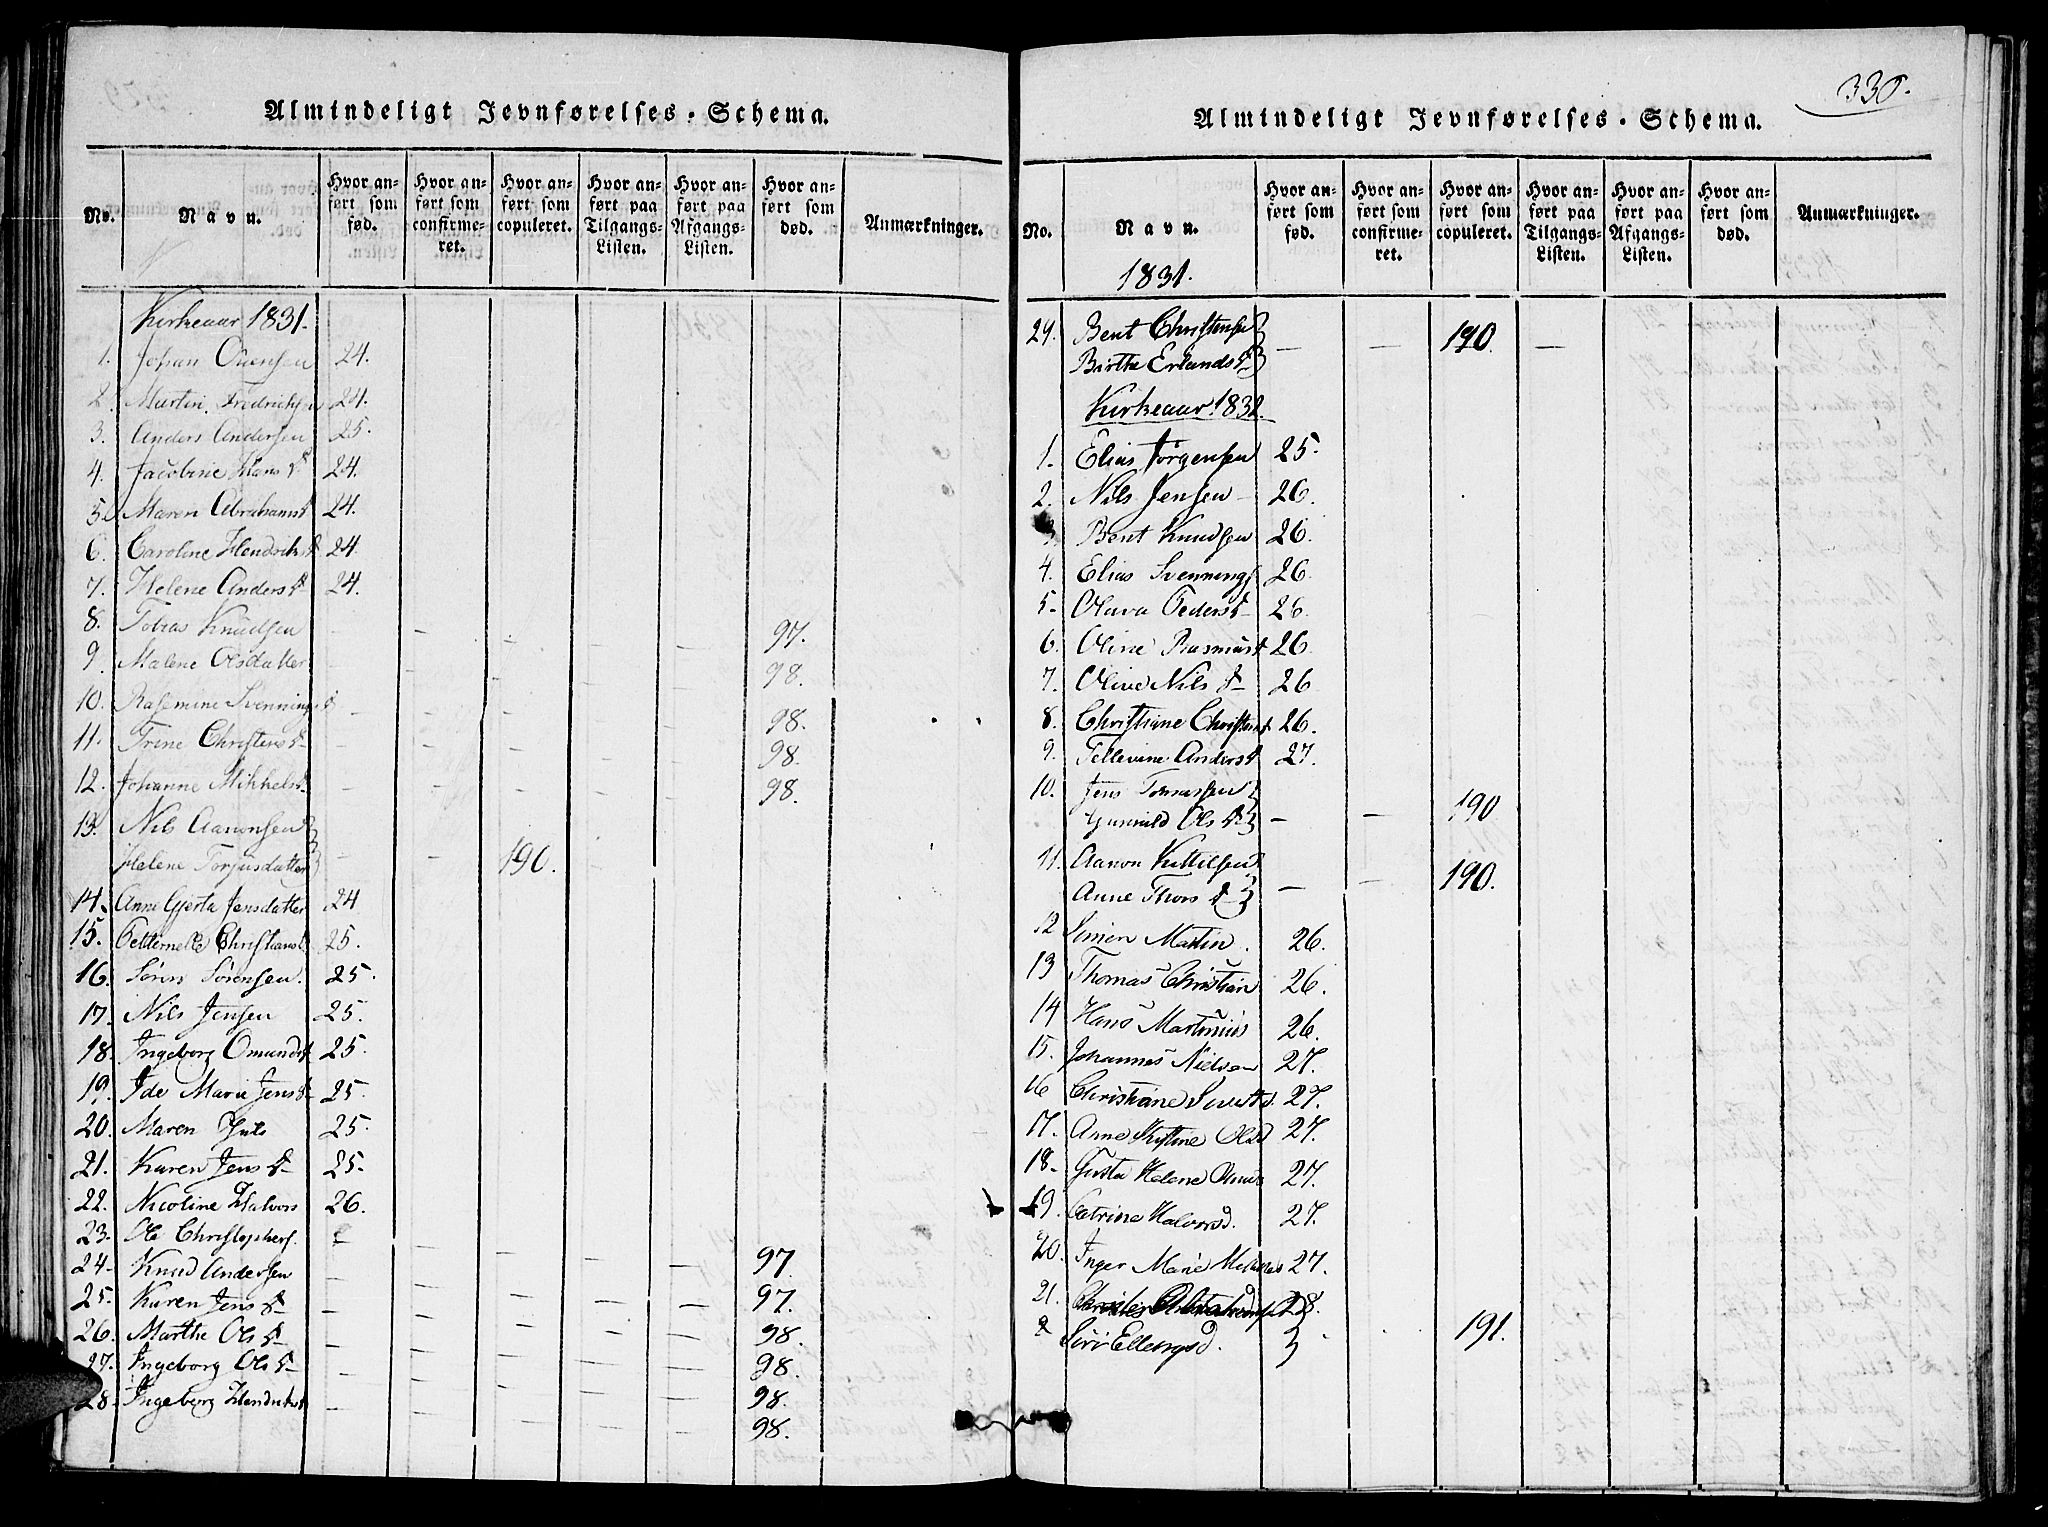 Almindeligt Jevnførelses-Schema.
No.
Navn.
Hvor anført som fød.
Hvor anført som confirmeret.
Hvor anført som copuleret.
Hvor anført paa Tilgangs-Listen.
Hvor anført paa Afgangs-Listen.
Hvor anført som død.
Anmærkninger.
Kirkeaar 1831.
1. Johan Olensen 24.
2. Martin Fredrichsen 24.
3. Anders Andersen 25.
4. Jacobine Hans d 24.
5. Maren Abrahamsd 24.
6. Caroline Hendriksd 24.
7. Helene Andersd 24.
8. Tobias Knudsen — — — — — 97.
9. Malene Olsdatter — — — — — 98.
10. Rasemine Svennings d — — — — — 98.
11. Trine Christensd — — — — — 98.
12. Johanne Mikkelsd — — — — — 98.
13. Nils Aanonsen
Helene Torjusdatter — — 190.
14. Anne Gjerta Jensdatter 24
15. Petternelle Christiansd 25.
16. Søren Sørensen. 25.
17. Nils Jensen 25.
18. Ingeborg Omundsd 25.
19. Ide Marie Jensd 25.
20. Maren 25.
21. Karen Jens d 25.
22. Nicoline Halvors 26.
23. Ole Christophers. — — — — — 97.
24. Knud Andersen — — — — — 97.
25. Karen Jens d — — — — — 98.
26. Marthe Ols d — — — — — 98.
27. Ingeborg Ols d — — — — — 98.
28. Ingeborg Hendriksd — — — — — 98.
330.
Almindeligt Jevnførelses-Schema.
No.
Navn.
Hvor anført som fød.
Hvor anført som confirmeret.
Hvor anført som copuleret.
Hvor anført paa Tilgangs-Listen.
Hvor anført paa Afgangs-Listen.
Hvor anført som død.
Anmærkninger.
1831.
29. Bent Christensen
Birthe Erlandsd — — 190. —
Kirkeaar 1832.
1. Elias Jørgensen 25.
2. Nils Jensen 26.
3 Bent Knudsen 26.
4. Elias Svennings 26.
5. Olava Peders d 26.
6. Oline Rasmusd 26.
7. Olive Nils d 26.
8. Christiane Christensd 26.
9. Tellevine Andersd 27.
10. Jens Tomassen
Gunnild Ols d — — 190
11. Aanon Kittelsen
Anne Thors d — — 190.
12 Simen Martin. 26.
13 Thomas Christian 26.
14 Hans Martinius 26.
15. Johannes Nielsen 27.
16 Christiane 27.
17. Anne Kistine Olsd 27.
18. Helene 27.
19. Catrine Halvorsd. 27.
20. Inger Marie 27.
21. 28.
Siri Ellengsd. 191.